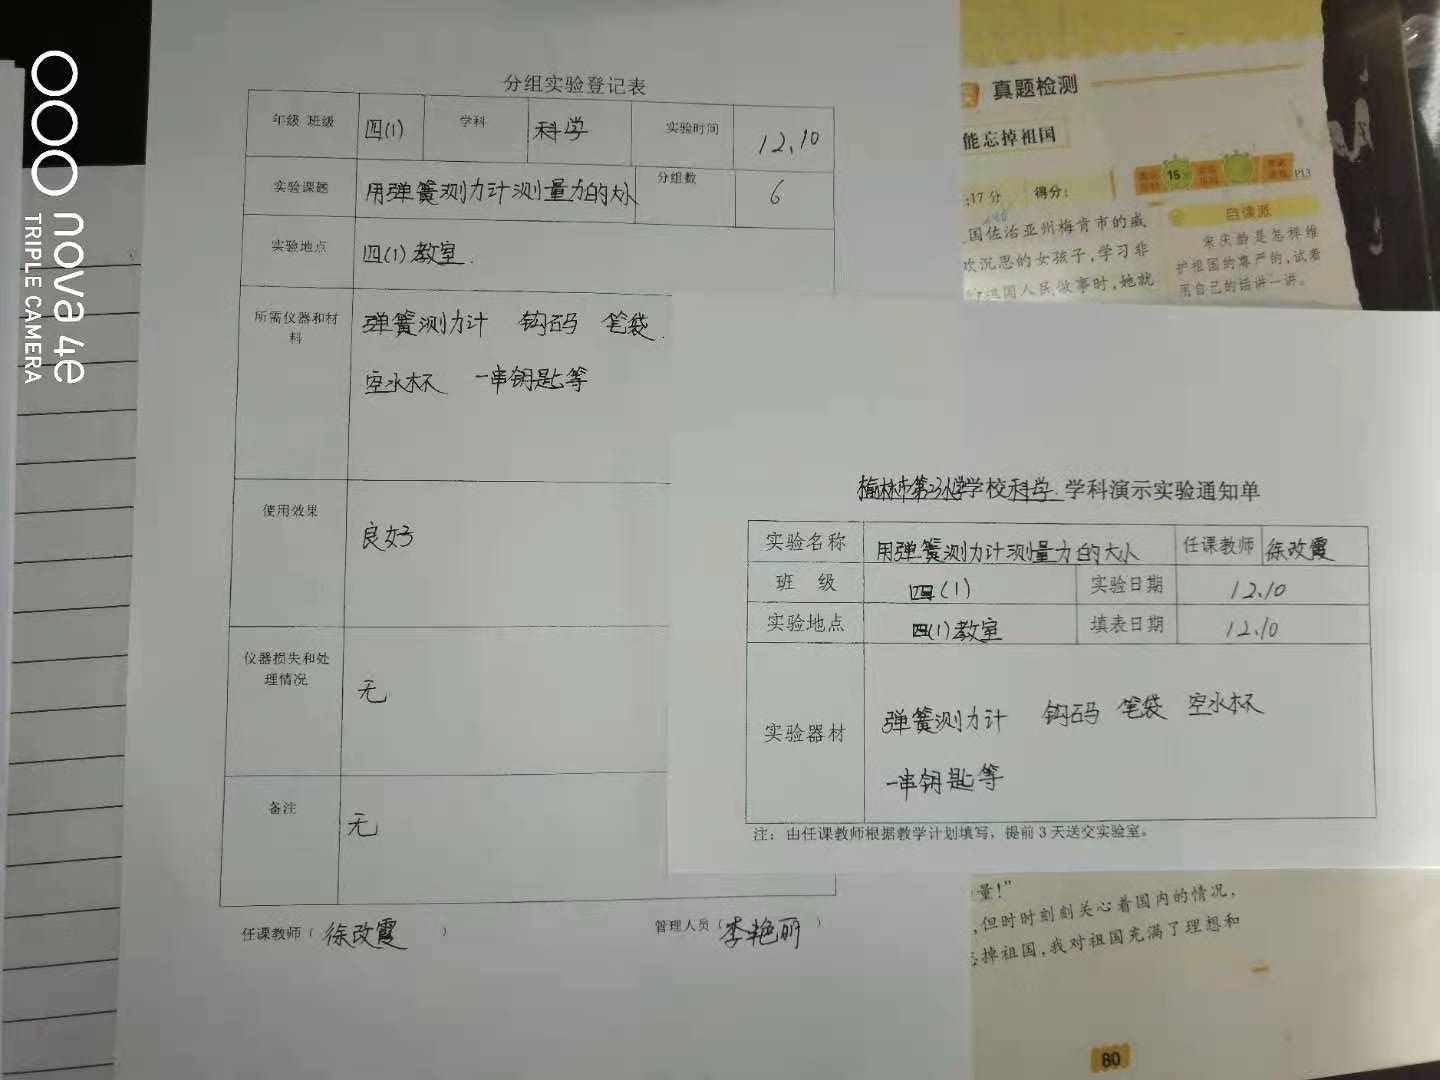 nova 4e
TRIPLE CAMERA
分组实验登记表
年级 班级 四(1) 学科 科学 实验时间 12.10
实验课题 用弹簧测力计测量力的大小 分组数 6
实验地点 四(1)教室.
所需仪器和材料 弹簧测力计 钩码 笔袋.
空水杯 一串钥匙等
使用效果 良好
仪器损失和处理情况 无
备注 无
任课教师( 徐改霞 ) 管理人员( 李艳丽 )
学校科学学科演示实验通知单
实验名称 用弹簧测力计测量力的大小 任课教师 徐改霞
班 级 四(1) 实验日期 12.10
实验地点 四(1)教室 填表日期 12.10
实验器材 弹簧测力计 钩码 笔袋 空水杯
一串钥匙等
注:由任课教师根据教学计划填写,提前3天送交实验室。
真题检测
能忘掉祖国
:17分 得分:
15
P13
国佐治亚州梅肯市的威
欢沉思的女孩子,学习非
祖国人民做事时,她就
自读派
宋庆龄是怎样维
护祖国的尊严的,试着
用自己的话讲一讲。
量!”
,但时时刻刻关心着国内的情况,
掉祖国,我对祖国充满了理想和
80